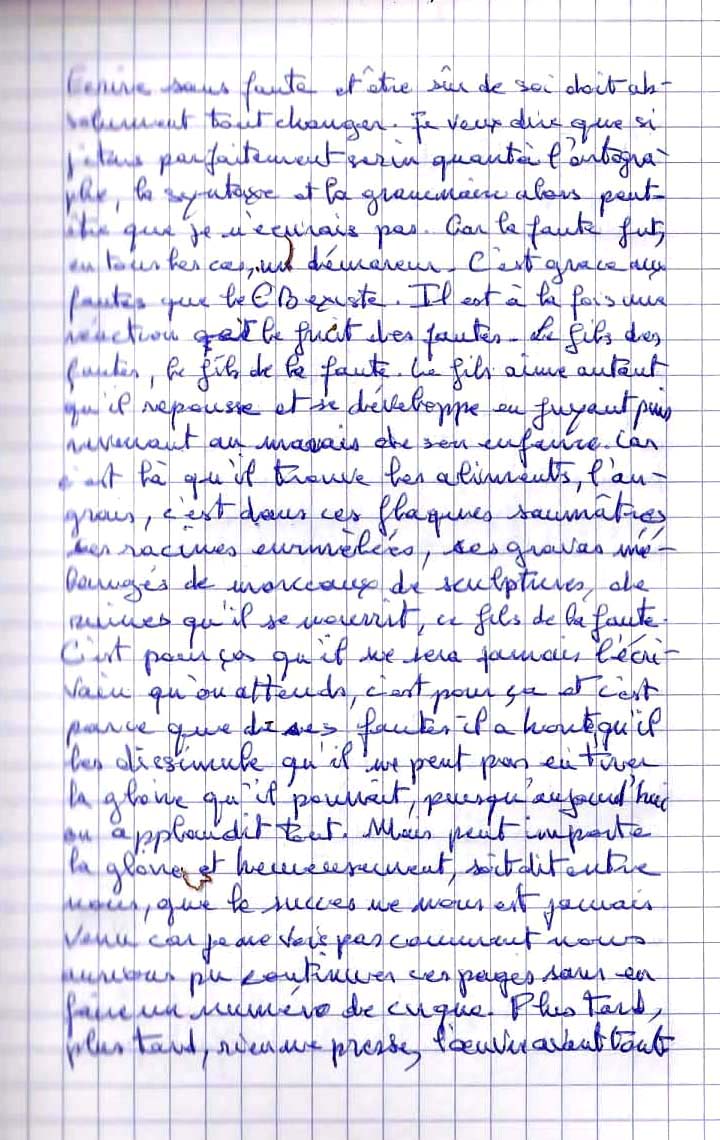 Ecrire sans faute et être sûr de soi doit ab-
solument tout changer. Je veux dire que si
j'étais parfaitement serin quant à l'ortogra-
phe, la syntaxe et la grammaire alors peut-
être que je n'écrirais pas. Car la faute fut,
en tous les cas, un démareur. C'est grace aux
fautes que le CB existe. Il est à la fois une
réaction et le fruit des fautes. Le fils des
fautes, le fils de la faute. Le fils aime autant
qu'il repousse et se développe en fuyant puis
revenant au marais de son enfance. Car
c'est là qu'il trouve les aliments, l'an-
grais, c'est dans ces flaques saumâtres
ses racines enmêlées, ses gravas mé-
langés de morceaux de sculptures, de
ruines qu'il se nourrit, ce fils de la faute.
C'est pour ça qu'il ne sera jamais l'écri-
vain qu'on attends, c'est pour ça et c'est
parce que de ses fautes il a honte qu'il
les dissimule qu'il ne peut pas en tirer
la gloire qu'il pourrait, puisqu'aujourd'hui
on applaudit tout. Mais peut importe
la gloire et heureusement, soit dit entre
nous, que le succes ne nous est jamais
venu car je ne vois pas comment nous
aurions pu continuer ces pages sans en
faire un numéro de cirque. Plus tard,
plus tard, rien ne presse, l'œuvre avant tout